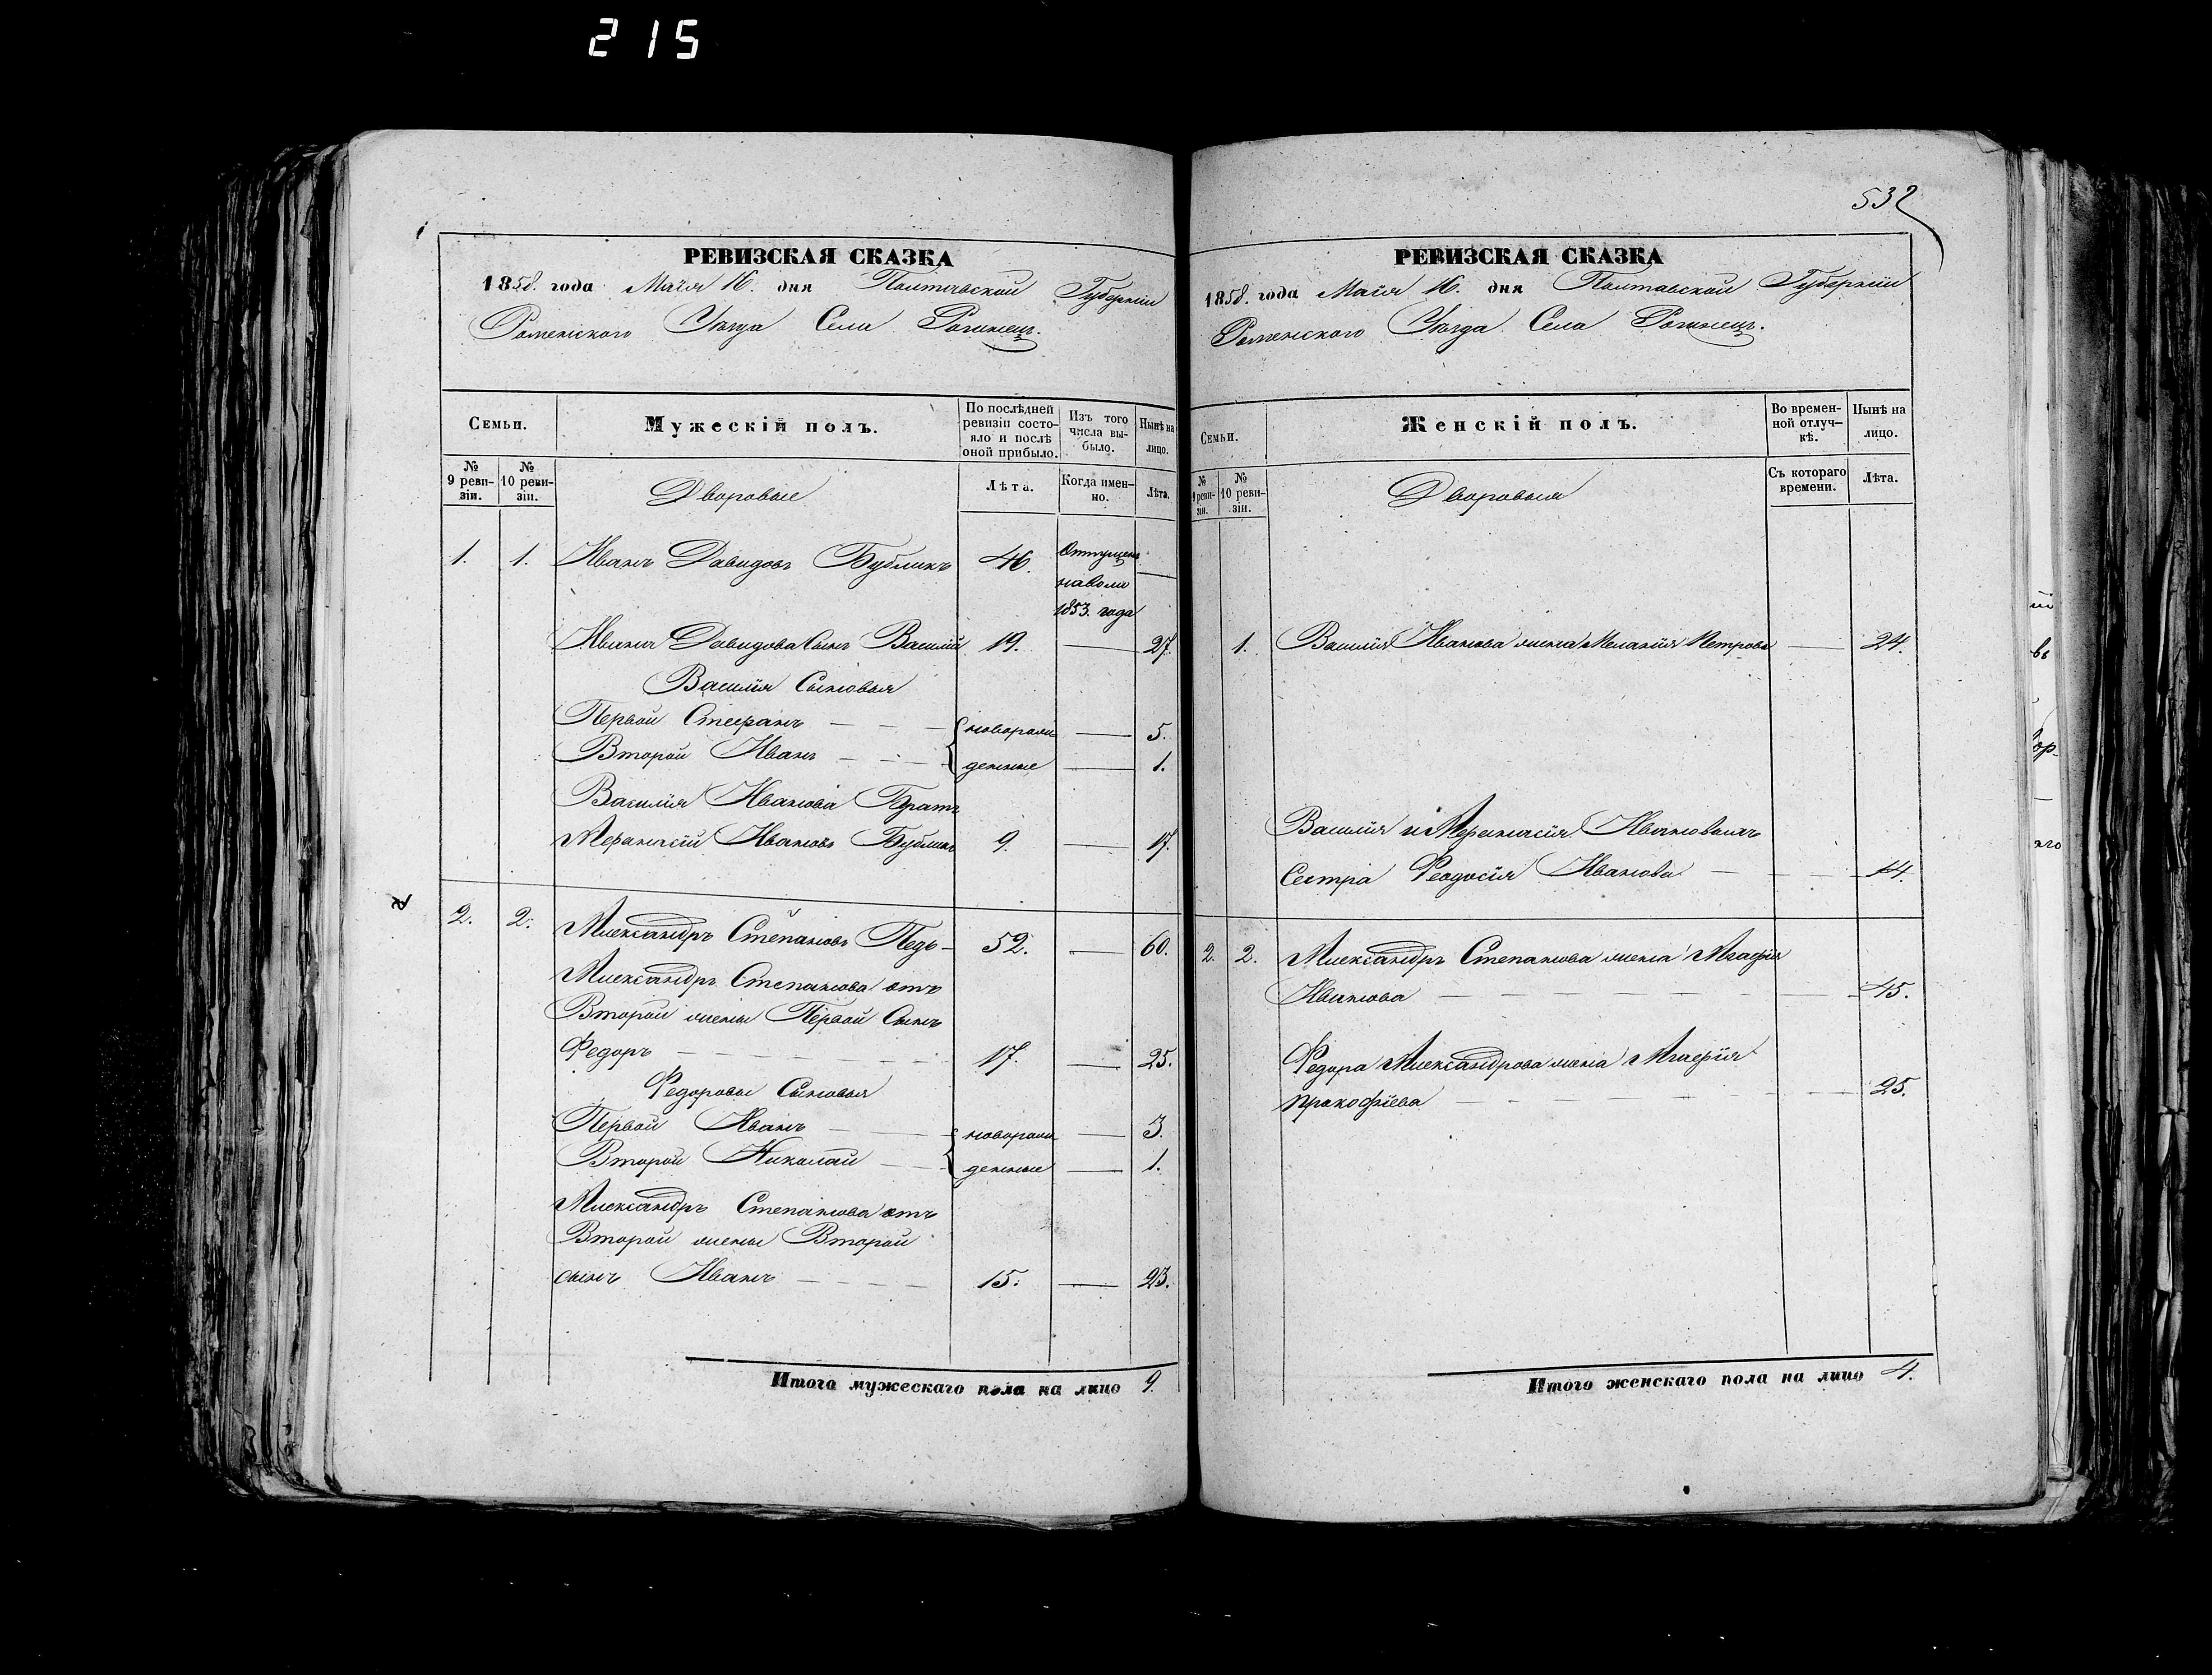 215
РЕВИЗСКАЯ СКАЗКА
1858. года Маія 16. дня Полтавской Губерніи
Роменского Уѣзда Села Рогинец.
Семьи.
Мужескій полъ.
По послѣдней ревизіи состояло и послѣ оной прибыло.
Изъ того числа выбыло.
Нынѣ на лицо.
№ 9 ревизіи.
№ 10 ревизіи.
Дворовые
Лѣта.
Когда именно.
Лѣта.
1. 1. Иванъ Давидовъ Бубликъ 46. Отпущенъ
наволю
1853. года
Ивана Давидова Сынъ Василій 19. — 27.
Василія Сыновья
Первой Стефанъ — — — новорож — 5.
Второй Иванъ — — — денные — 1.
Василія Иванова Братъ
Афанасій Ивановъ Бубликъ 9. — 17.
2. 2. Александръ Степановъ 52. — 60.
Александръ Степанова отъ
Второй жены Первой Сынъ
Федоръ — 17. — 25.
Федоровы Сыновья
Первой Иванъ — новорож — 3.
Второй Николай — денные — 1.
Александръ Степанова отъ
Второй жены Второй
сынъ Иванъ — 15. — 23.
Итого мужескаго пола на лицо 9.
532
РЕВИЗСКАЯ СКАЗКА
1858. года Маія 16. дня Полтавской Губерніи
Роменского Уѣзда Села Рогинец.
Семьи.
Женскій полъ.
Во временной отлучкѣ.
Нынѣ на лицо.
№ 9 ревизіи.
№ 10 ревизіи.
Дворовыя
Съ котораго времени.
Лѣта.
1. Василія Иванова жена Меланія Петрова — 24.
Василія и Афанасія Ивановыхъ
Сестра Феодосія Иванова — 14.
2. 2. Александръ Степанова жена Агафія
Иванова — 45.
Федора Александрова жена Агафія
Прокофіева — 25.
Итого женскаго пола на лицо 4.